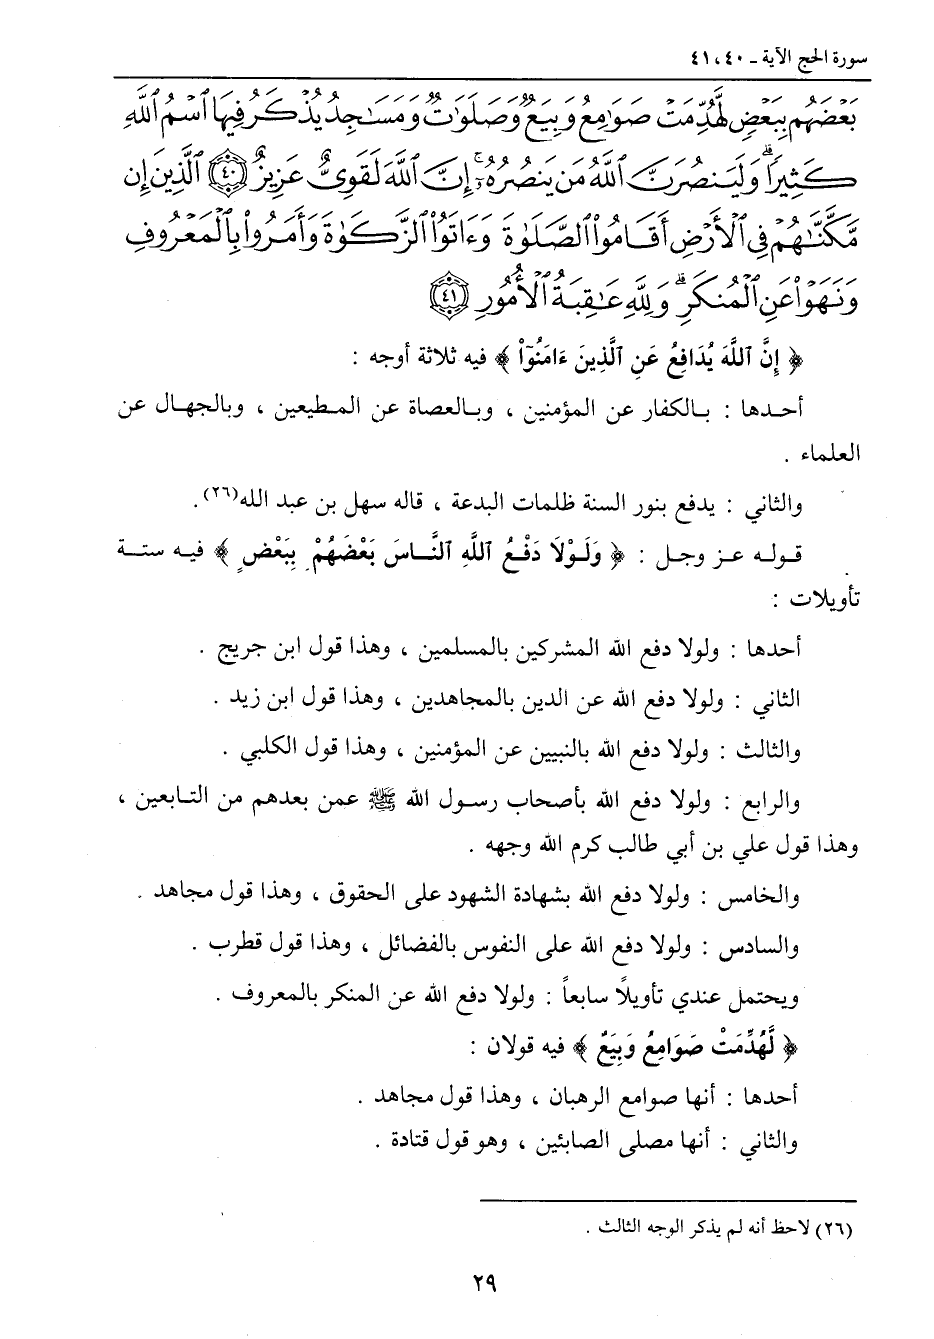 سورة الحج الآية ـ ٤٠، ٤١
بَعْضَهُم بِبَعْضٍ لَّهُدِّمَتْ صَوَامِعُ وَبِيَعٌ وَصَلَوَاتٌ وَمَسَاجِدُ يُذْكَرُ فِيهَا ٱسْمُ ٱللَّهِ
كَثِيرًا ۗ وَلَيَنصُرَنَّ ٱللَّهُ مَن يَنصُرُهُ ۚ إِنَّ ٱللَّهَ لَقَوِيٌّ عَزِيزٌ ٤٠ ٱلَّذِينَ إِن
مَّكَّنَّاهُمْ فِي ٱلْأَرْضِ أَقَامُوا۟ ٱلصَّلَوٰةَ وَءَاتَوُا۟ ٱلزَّكَوٰةَ وَأَمَرُوا۟ بِٱلْمَعْرُوفِ
وَنَهَوْا۟ عَنِ ٱلْمُنكَرِ ۗ وَلِلَّهِ عَاقِبَةُ ٱلْأُمُورِ ٤١
﴿ إِنَّ ٱللَّهَ يُدَافِعُ عَنِ ٱلَّذِينَ ءَامَنُوٓا۟ ﴾ فيه ثلاثة أوجه :
أحدها : بالكفار عن المؤمنين ، وبالعصاة عن المطيعين ، وبالجهال عن
العلماء .
والثاني : يدفع بنور السنة ظلمات البدعة ، قاله سهل بن عبد الله(٢٦).
قوله عز وجل : ﴿ وَلَوْلَا دَفْعُ ٱللَّهِ ٱلنَّاسَ بَعْضَهُمْ بِبَعْضٍ ﴾ فيه ستة
تأويلات :
أحدها : ولولا دفع الله المشركين بالمسلمين ، وهذا قول ابن جريج .
الثاني : ولولا دفع الله عن الدين بالمجاهدين ، وهذا قول ابن زيد .
والثالث : ولولا دفع الله بالنبيين عن المؤمنين ، وهذا قول الكلبي .
والرابع : ولولا دفع الله بأصحاب رسول الله ﷺ عمن بعدهم من التابعين ،
وهذا قول علي بن أبي طالب كرم الله وجهه .
والخامس : ولولا دفع الله بشهادة الشهود على الحقوق ، وهذا قول مجاهد .
والسادس : ولولا دفع الله على النفوس بالفضائل ، وهذا قول قطرب .
ويحتمل عندي تأويلاً سابعاً : ولولا دفع الله عن المنكر بالمعروف .
﴿ لَّهُدِّمَتْ صَوَامِعُ وَبِيَعٌ ﴾ فيه قولان :
أحدها : أنها صوامع الرهبان ، وهذا قول مجاهد .
والثاني : أنها مصلى الصابئين ، وهو قول قتادة .
(٢٦) لاحظ أنه لم يذكر الوجه الثالث .
٢٩